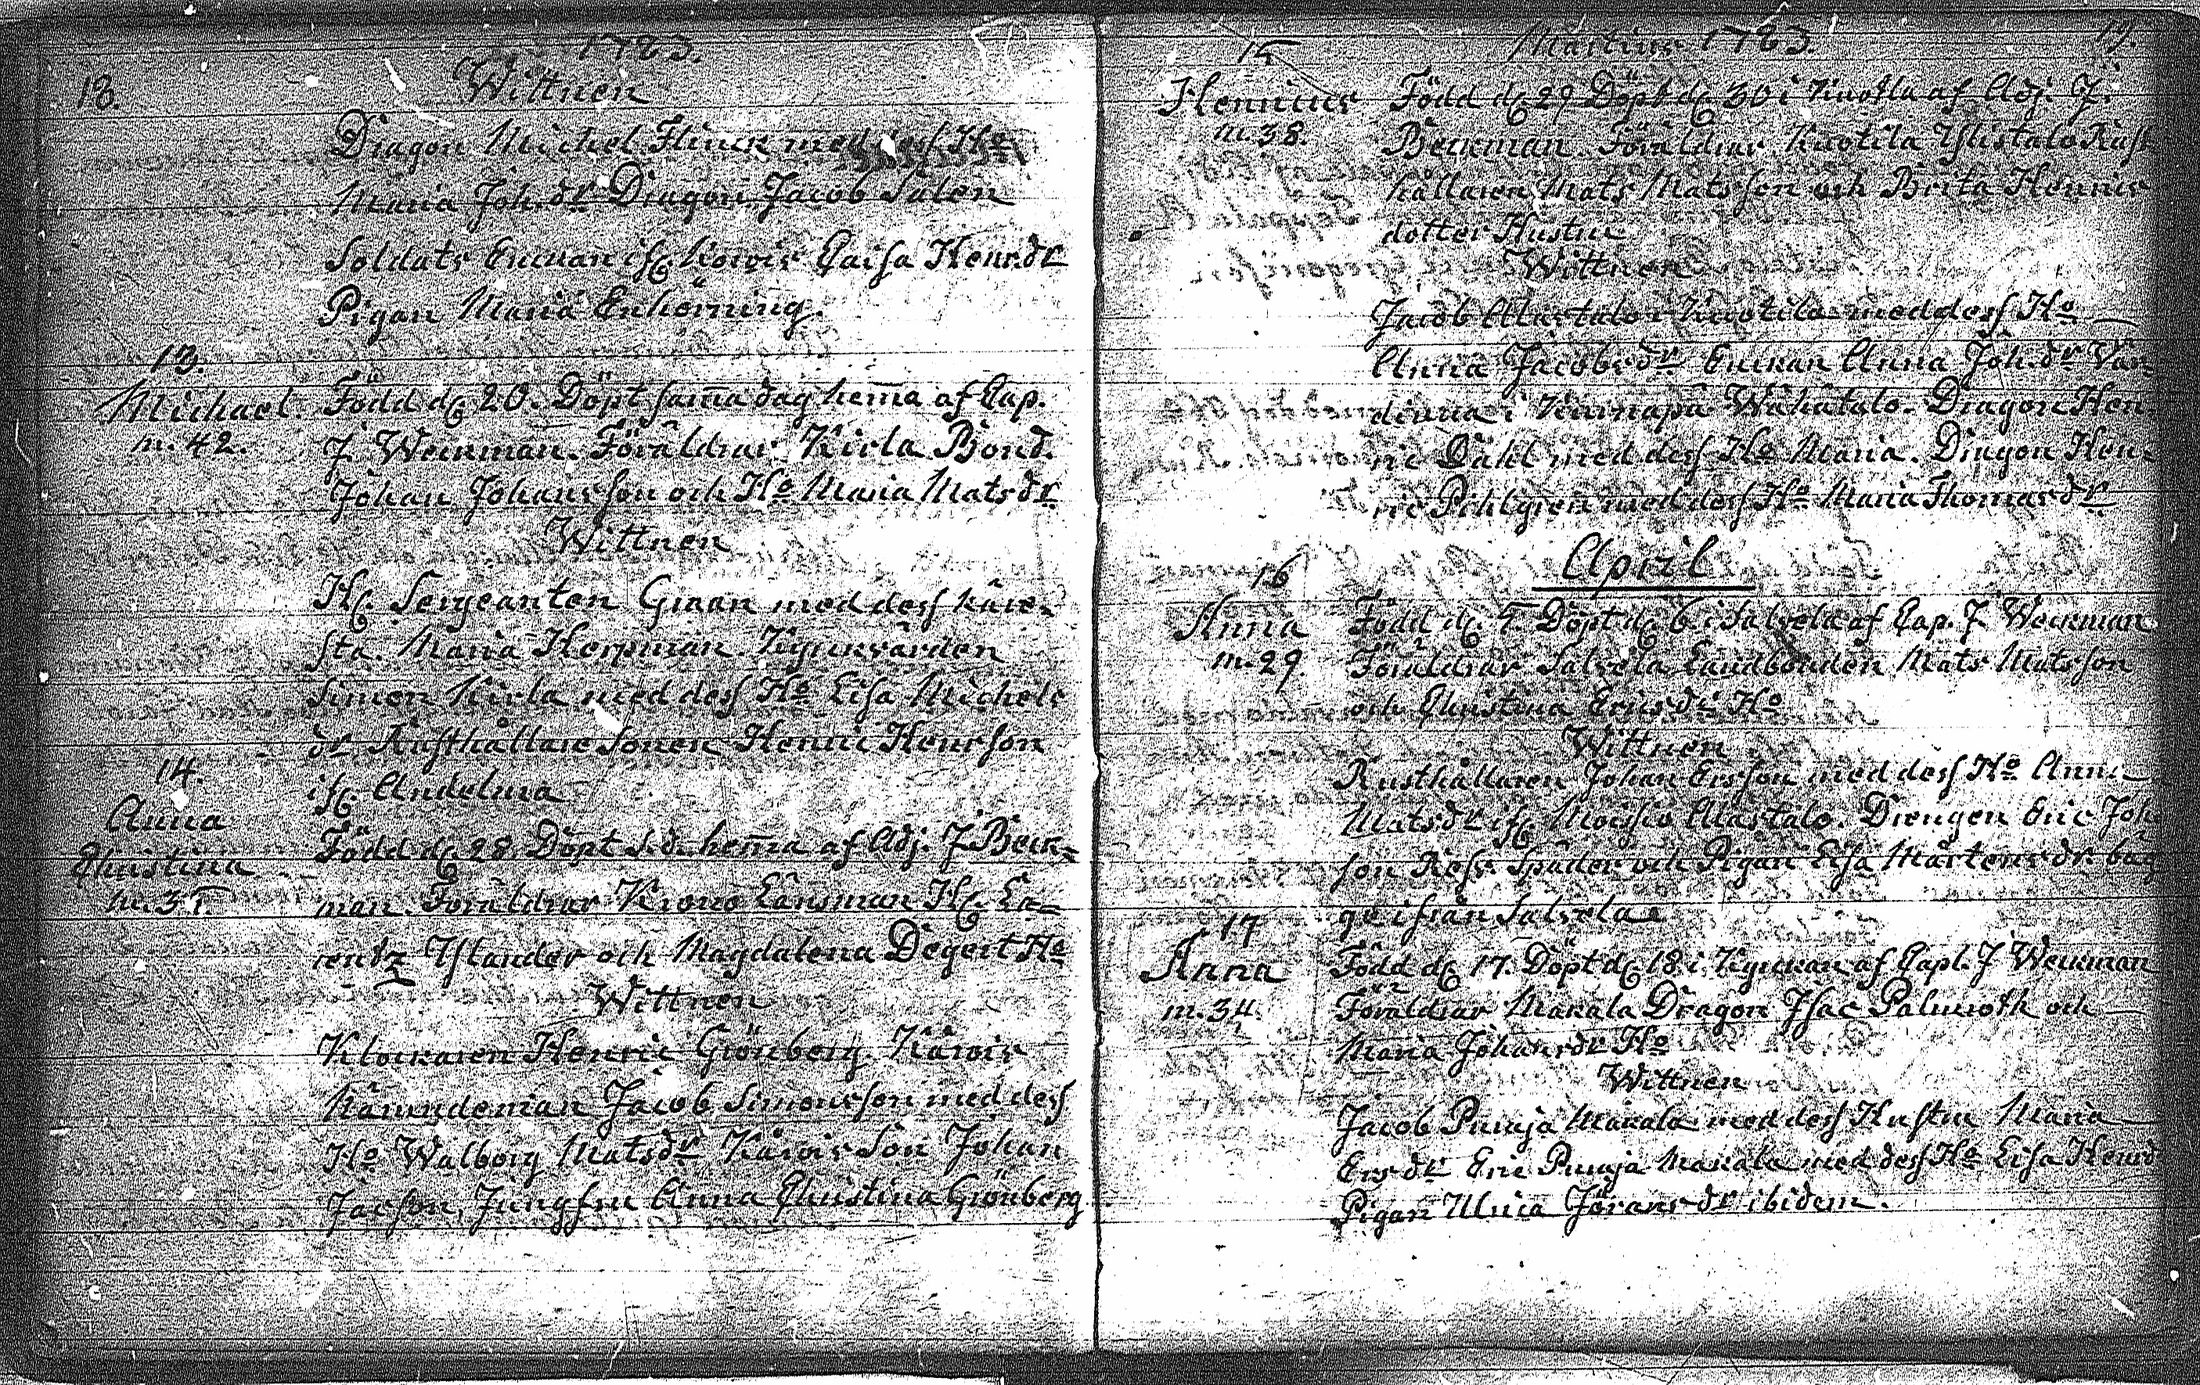 1783.
18.
Wittnen
Dragon Michel Flinck med dess Ho
Maria Joh.dr Dragon Jacob Salen
Soldats Enkan ifr. Kärvis Caisa Henr.dr
Pigan Maria Enhörning.
13.
Michael.
m. 42.
Född d. 20. Döpt samma dag hema af Cap.
J. Weckman. Föräldrar Kirla Bond.
Johan Johansson och Ho Maria Matsdr
Wittnen
H. Sergeanten Graan med dess käre-
sta. Maria Herpman. Kyrkvärden
Simon Kirla med dess Ho Lisa Michels
dr Rusthållare Sonen Henric Henrsson
ifr. Andelma
14.
Anna
Christina
m. 35.
Född d. 28. Döpt s.d. hema af Adj. J. Beck-
man. Föräldrar Krono Länsman H. La-
rentz Islander och Magdalena Degert Ho
Wittnen
Klockaren Henric Grönberg Kärvis
Nämndeman Jacob Simonsson med dess
Ho Walborg Matsdr Kärvis Son Johan
Jacsson, Jungfru Anna Christina Grönberg
Martius 1783.
19.
15
Henricus
m. 38.
Född d. 29 Döpt d. 30 i Kuotila af Adj. J.
Beckman. Föräldrar Kuotila Ylistalo Rust
hållaren Mats Matsson och Brita Henrics
dotter Hustru
Wittnen
Jacob Alastalo i Kuotila med dess Ho
Anna Jacobsdr Enkan Anna Joh.dr Vär-
dinna i Kiurnapä Wähätalo. Dragon Hen-
ric Dahl med dess Ho Maria. Dragon Hen-
ric Pihlgren med dess Ho Maria Thomasdr
April
16
Anna
m. 29.
Född d. 5. Döpt d. 6 i Salvela af Cap. J. Weckman
Föräldrar Salvela Landbonden Mats Matsson
och Christina Ericsdr Ho
Wittnen
Rusthållaren Johan Ersson med dess Ho Anna
Matsdr ifr. Moisio Alastalo. Drengen Eric Joh
son Ress Spader och Pigan Lisa Mårtensdr bäg
ge ifrån Salvela
17
Anna
m. 34.
Född d. 17. Döpt d. 18 i Kyrckan af Capl. J Weckman
Föräldrar Makala Dragon Isac Palmroth och
Maria Johansdr Ho
Wittnen
Jacob Puraja Makala med dess Hustru Maria
Ersdr Eric Puraja Makala med dess Ho Lisa Henrd
Pigan Ulrica Göransdr ibidem.